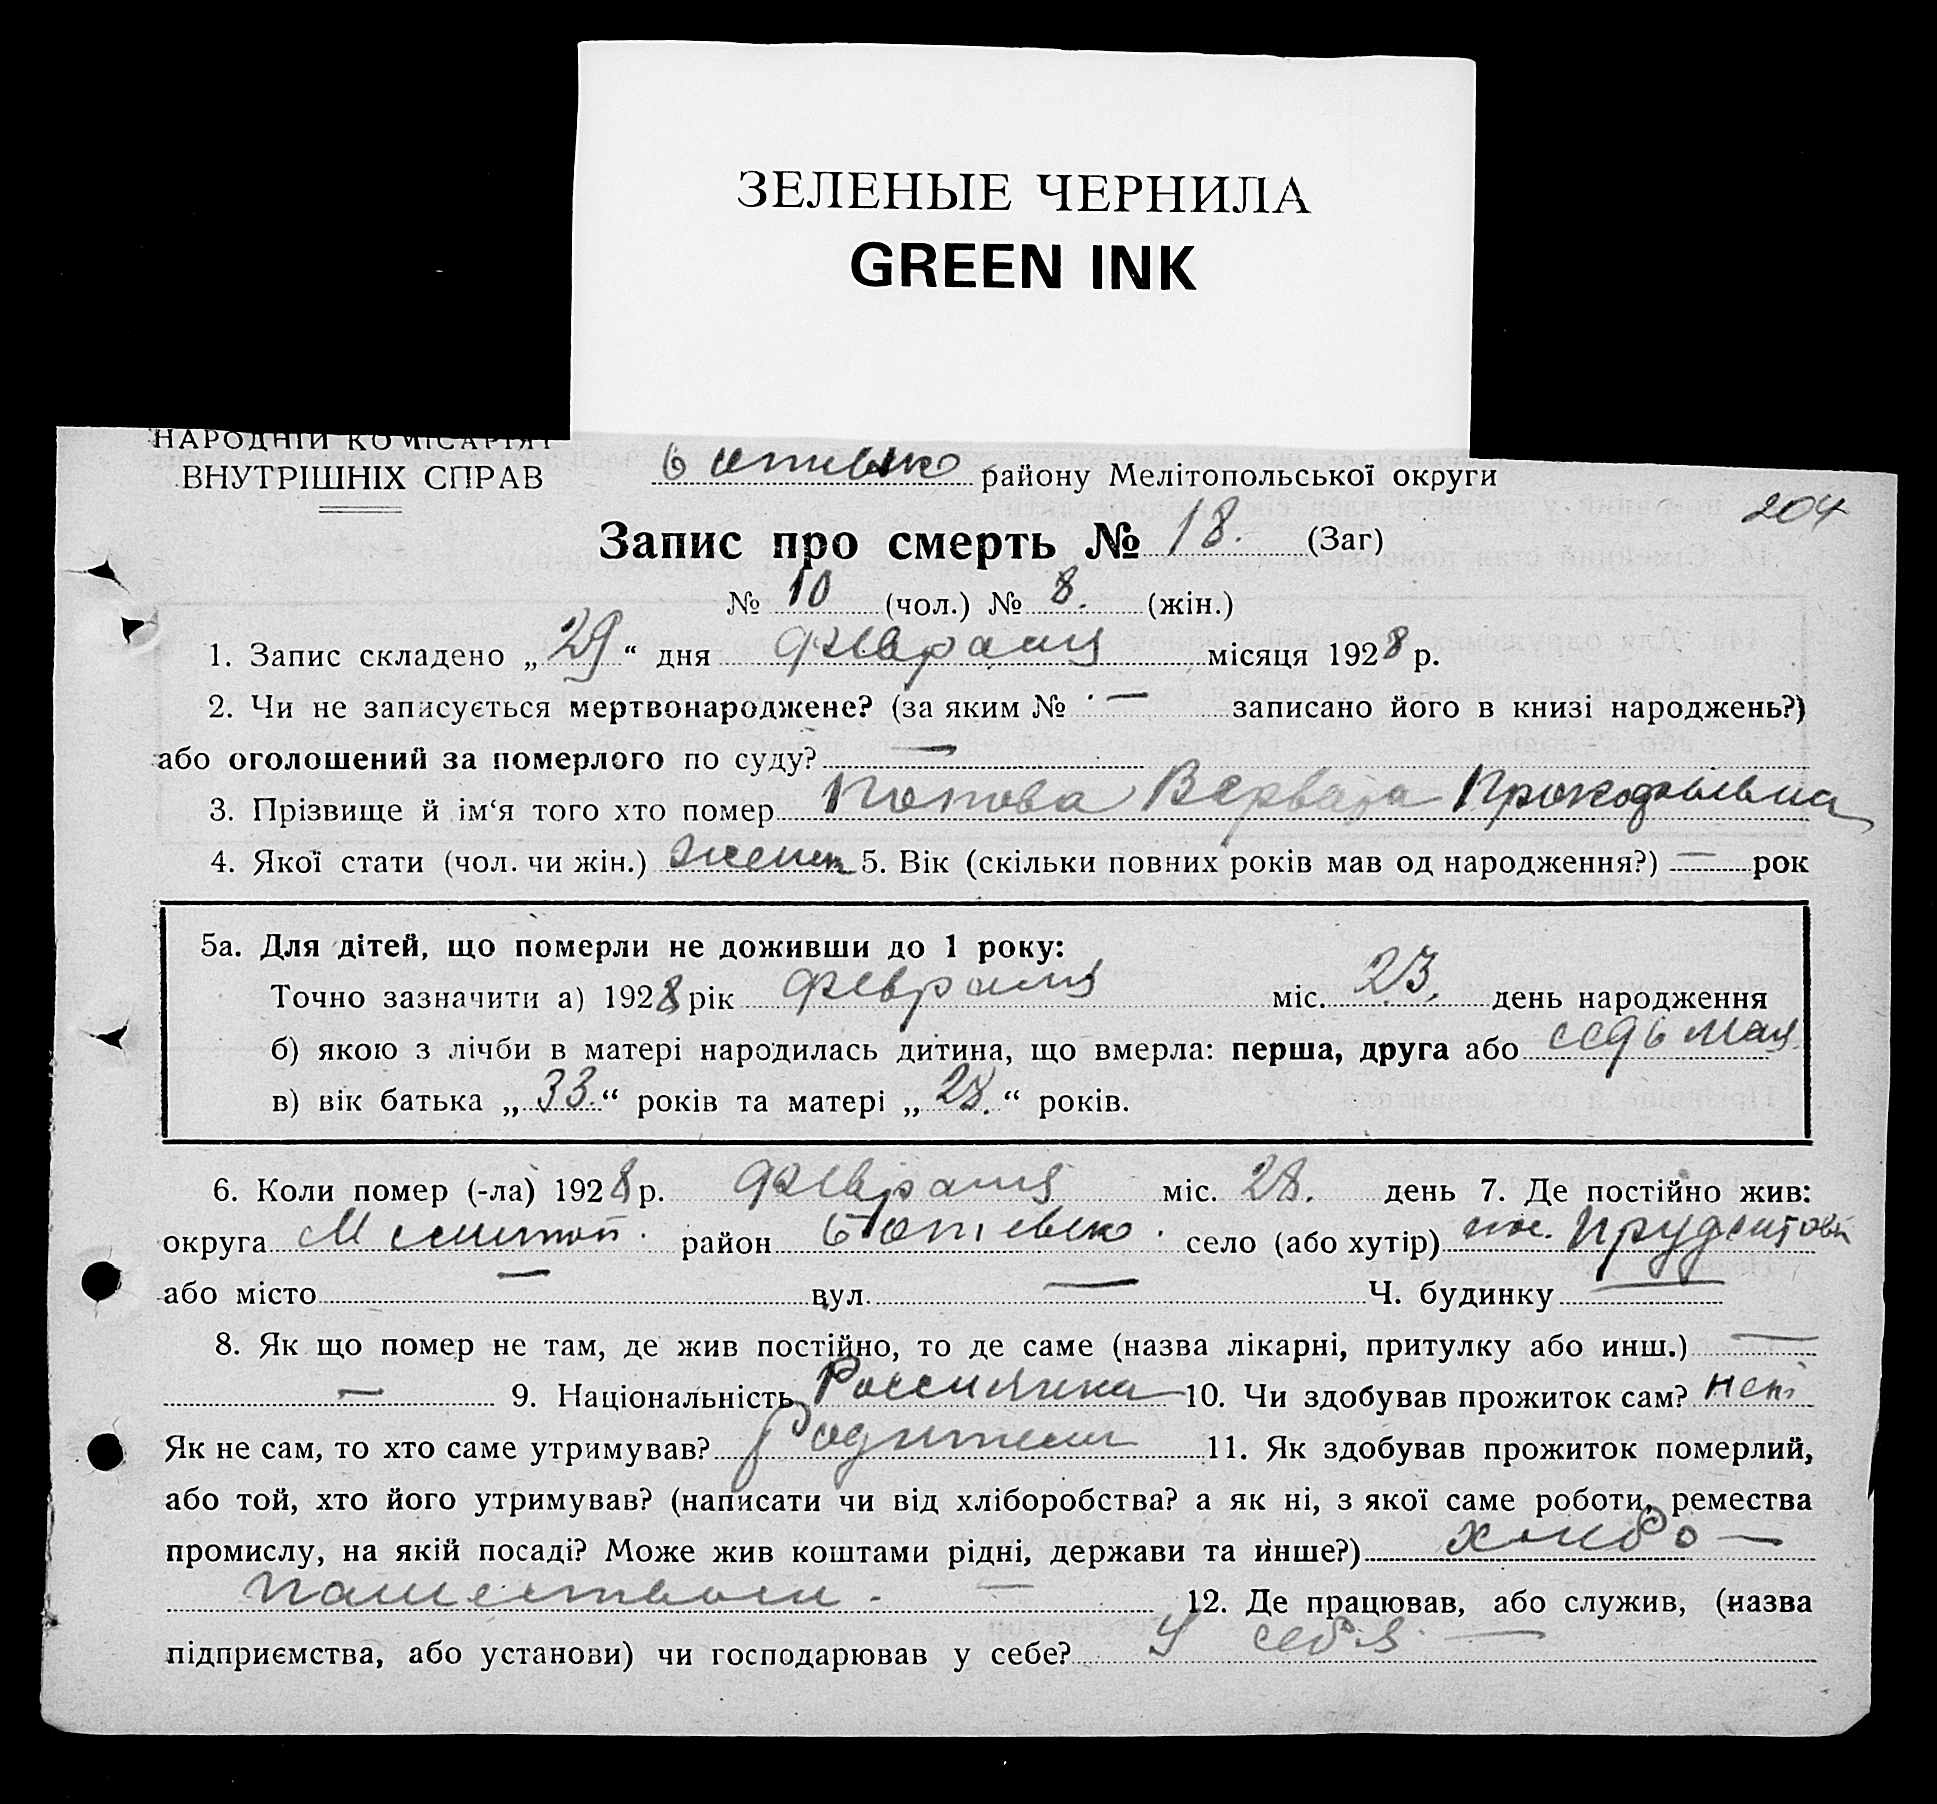 ЗЕЛЕНЫЕ ЧЕРНИЛА
GREEN INK
НАРОДНІЙ КОМІСАРІЯТ
ВНУТРІШНІХ СПРАВ
Ботіевско району Мелітопольської округи
204
Запис про смерть № 18. (Заг)
№ 10 (чол.) № 8. (жін.)
1. Запис складено „29“ дня февраля місяця 1928 р.
2. Чи не записується мертвонароджене? (за яким № — записано його в книзі народжень?)
або оголошений за померлого по суду? —
3. Прізвище й ім‘я того хто помер Попова Варвара Прокофьевна
4. Якої стати (чол. чи жін.) женск 5. Вік (скільки повних років мав од народження?) — рок
5а. Для дітей, що померли не доживши до 1 року:
Точно зазначити а) 1928 рік февраля міс. 23. день народження
б) якою з лічби в матері народилась дитина, що вмерла: перша, друга або седьмая
в) вік батька „33.“ років та матері „28.“ років.
6. Коли помер (-ла) 1928 р. февраля міс. 28. день 7. Де постійно жив:
округа Мелитоп. район Ботіевско. село (або хутір) пос. Прудентово
або місто — вул. — Ч. будинку —
8. Як що помер не там, де жив постійно, то де саме (назва лікарні, притулку або инш.) —
— 9. Національність Россиянка 10. Чи здобував прожиток сам? нет
Як не сам, то хто саме утримував? Родители 11. Як здобував прожиток померлий,
або той, хто його утримував? (написати чи від хліборобства? а як ні, з якої саме роботи, ремества
промислу, на якій посаді? Може жив коштами рідні, держави та йнше?) хлебо —
пашеством. — 12. Де працював, або служив, (назва
підприємства, або установи) чи господарював у себе? У себя. —